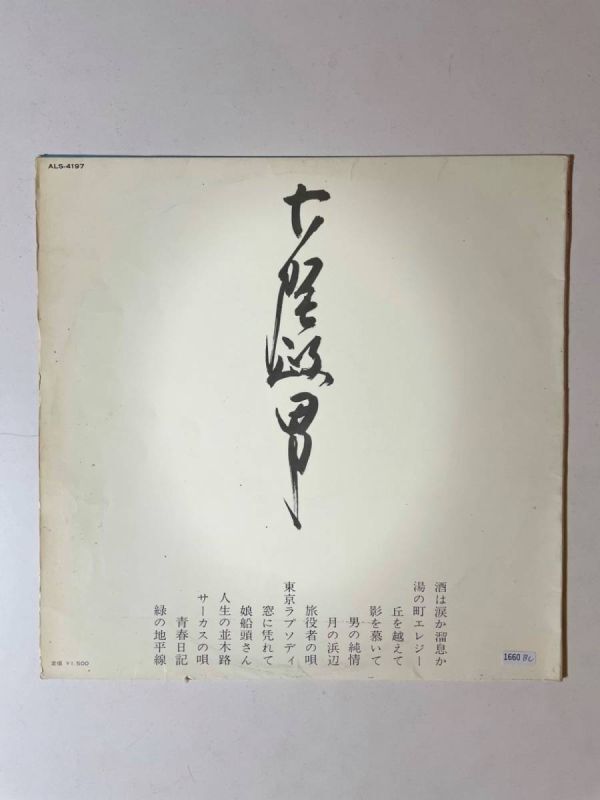 ALS-4197
古賀政男
酒は涙か溜息か
湯の町エレジー
丘を越えて
影を慕いて
男の純情
月の浜辺
旅役者の唄
東京ラプソディ
窓に凭れて
娘船頭さん
人生の並木路
サーカスの唄
青春日記
緑の地平線
定価 ¥1,500
1660